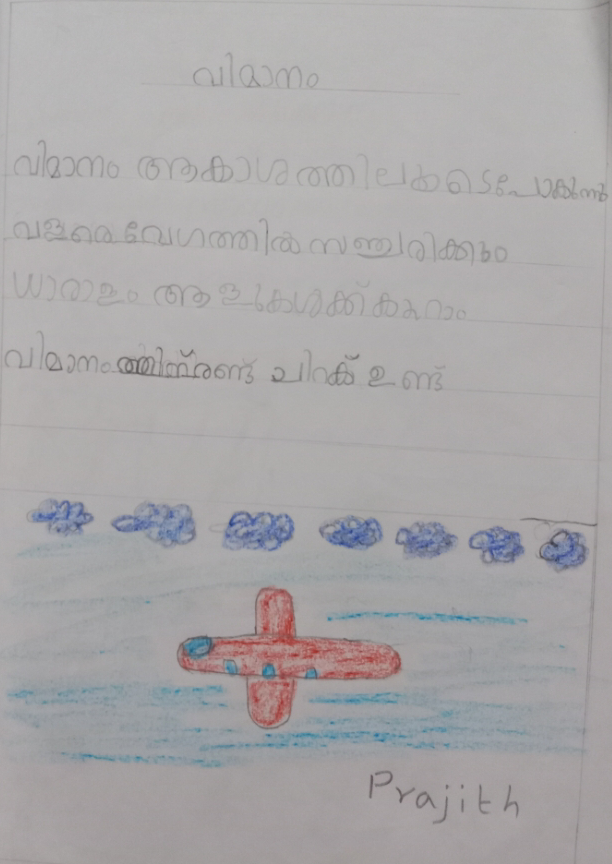 വിമാനം
വിമാനം ആകാശത്തിലൂടെ പോകുന്നു
വളരെ വേഗത്തിൽ സഞ്ചരിക്കും
ധാരാളം ആളുകൾക്ക് കയറാം
വിമാനത്തിന് രണ്ട് ചിറക് ഉണ്ട്
Prajith